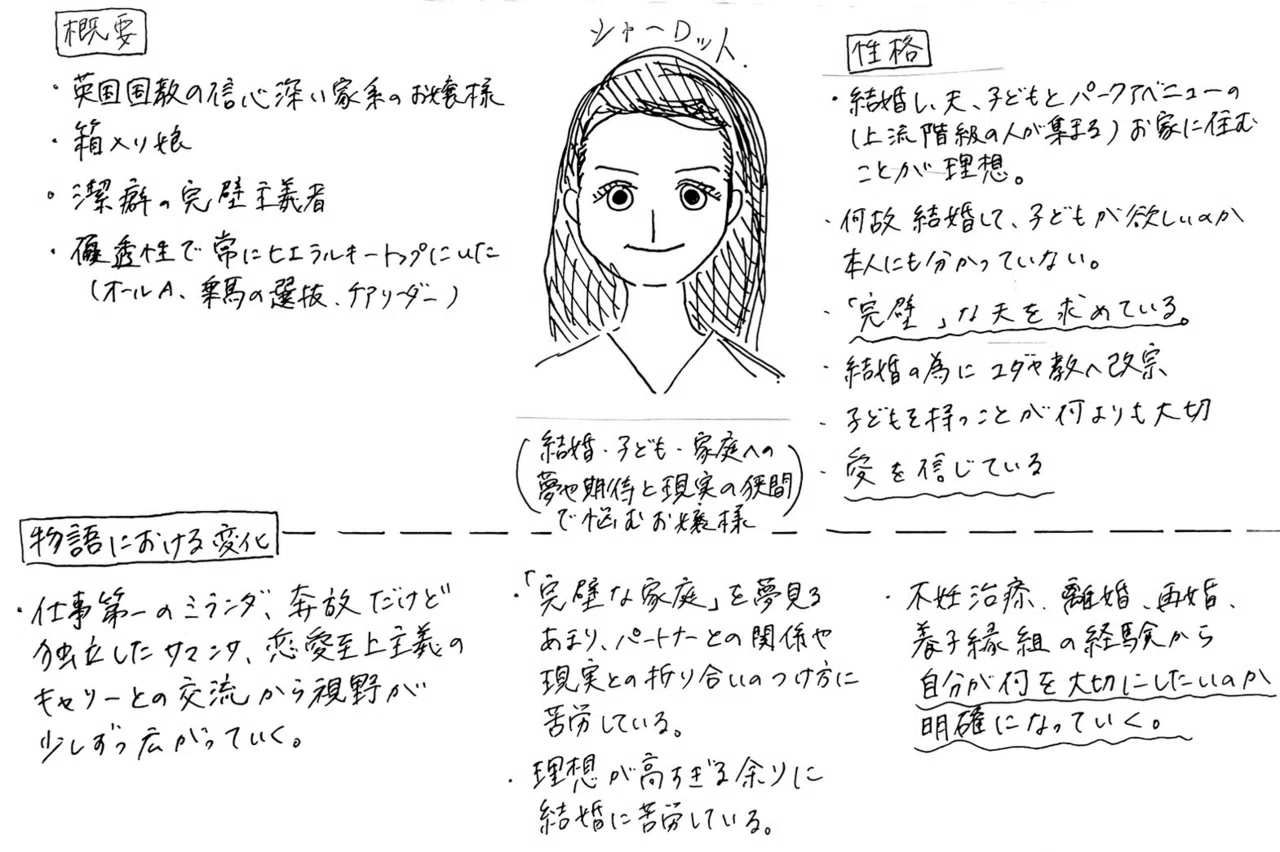 概要
・英国国教の信心深い家系のお嬢様
・箱入り娘
・潔癖の完璧主義者
・優等性で常にヒエラルキートップにいた
(オールA、乗馬の選抜、チアリーダー)
シャーロット
(結婚・子ども・家庭への
夢や期待と現実の狭間
で悩むお嬢様)
性格
・結婚し、夫、子どもとパークアベニューの
(上流階級の人が集まる)お家に住む
ことが理想。
・何故結婚して、子どもが欲しいのか
本人にも分かっていない。
・「完璧」な夫を求めている。
・結婚の為にユダヤ教へ改宗
・子どもを持つことが何よりも大切
・愛を信じている
物語における変化
・仕事第一のミランダ、奔放だけど
独立したサマンサ、恋愛至上主義の
キャリーとの交流から視野が
少しずつ広がっていく。
・「完璧な家庭」を夢見る
あまり、パートナーとの関係や
現実との折り合いのつけ方に
苦労している。
・理想が高すぎる余りに
結婚に苦労している。
・不妊治療、離婚、再婚、
養子縁組の経験から
自分が何を大切にしたいのか
明確になっていく。